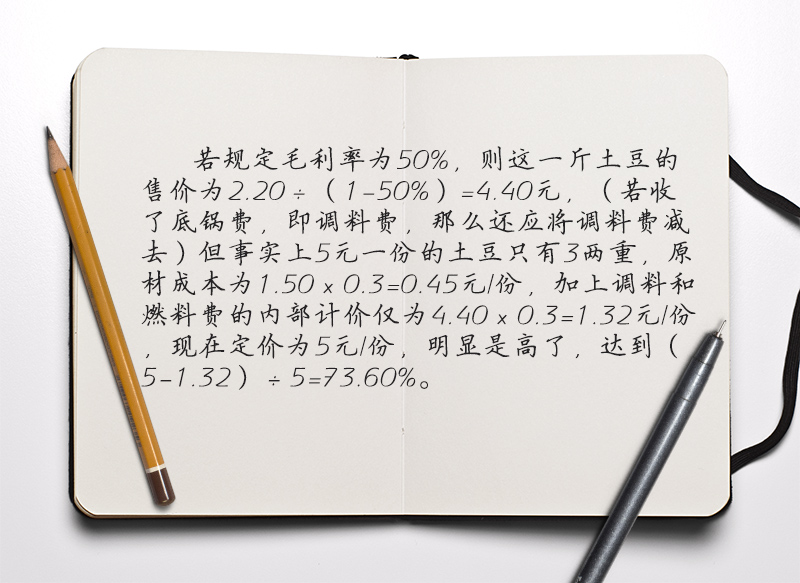 若规定毛利率为50%，则这一斤土豆的
售价为2.20÷（1-50%）=4.40元，（若收
了底锅费，即调料费，那么还应将调料费减
去）但事实上5元一份的土豆只有3两重，原
材成本为1.50×0.3=0.45元/份，加上调料和
燃料费的内部计价仅为4.40×0.3=1.32元/份
，现在定价为5元/份，明显是高了，达到（
5-1.32）÷5=73.60%。